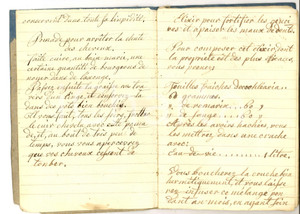 conserver dans toute sa limpidité.
Pommade pour arrêter la chute
des cheveux.
Faites cuire, au bain-marie, une
certaine quantité de bourgeons de
dans de l'axonge.
Passez ensuite la graisse au tra-
vers d'un linge, et
la dans des pots bien bouchés.
Il vous suffit, tous les soirs, frotter
le cuir chevelu avec cette pomma-
de, et, au bout de très peu de
temps, vous vous apercevrez
que vos cheveux cessent de
tomber.
Elixir pour fortifier les genci-
ves et apaiser les maux de dents.
Pour composer cet élixir dont
la propriété est des plus
vous prenez:
Feuilles fraîches de cochléaria
60 g
de romarin ... 60 g
de sauge ... 60 g
Après les avoir hachées, vous
les mettrez dans une cruche
avec:
Eau-de-vie ... 1 litre.
Vous boucherez la cruche her-
métiquement, et vous laisse-
rez infuser ce mélange pen-
dant un mois, en ayant soin